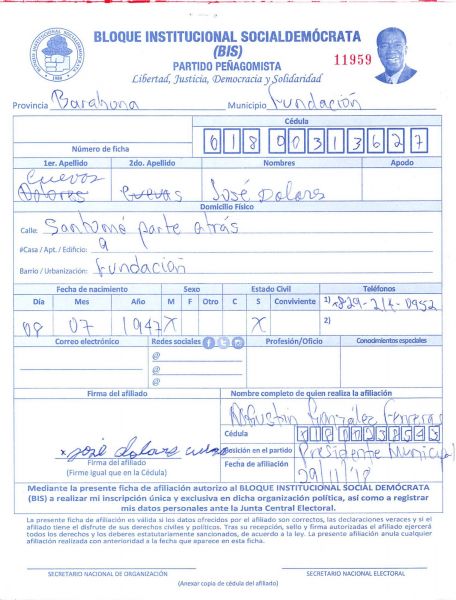 BLOQUE INSTITUCIONAL SOCIALDEMÓCRATA
(BIS)
PARTIDO PEÑAGOMISTA
11959
Libertad, Justicia, Democracia y Solidaridad
Provincia Barahona Municipio Fundación
Cédula
Número de ficha 018 0031362 7
1er. Apellido 2do. Apellido Nombres Apodo
Cuevas
Dolores Cuevas José Dolores
Domicilio Físico
Calle: Santomé parte atrás
#Casa / Apt. / Edificio: 9
Barrio / Urbanización: Fundación
Fecha de nacimiento Sexo Estado Civil Teléfonos
Día Mes Año M F Otro C S Conviviente 1) 829-214-0952
08 07 1947 X X 2)
Correo electrónico Redes sociales Profesión/Oficio Conocimientos especiales
@
@
@
Firma del afiliado Nombre completo de quien realiza la afiliación
González
Cédula
x José dolores cueva Posición en el partido Presidente Municipal
Firma del afiliado Fecha de afiliación 29/11/18
(Firme igual que en la Cédula)
Mediante la presente ficha de afiliación autorizo al BLOQUE INSTITUCIONAL SOCIAL DEMÓCRATA
(BIS) a realizar mi inscripción única y exclusiva en dicha organización política, así como a registrar
mis datos personales ante la Junta Central Electoral.
La presente ficha de afiliación es válida si los datos ofrecidos por el afiliado son correctos, las declaraciones veraces y si el
afiliado tiene el disfrute de sus derechos civiles y políticos. Tras su recepción, sello y firma autorizadas el afiliado ejercerá
todos los derechos y los deberes estatutariamente sancionados, de acuerdo a la ley. La presente afiliación anula cualquier
afiliación realizada con anterioridad a la fecha que aparece en esta ficha.
SECRETARIO NACIONAL DE ORGANIZACIÓN SECRETARIO NACIONAL ELECTORAL
(Anexar copia de cédula del afiliado)